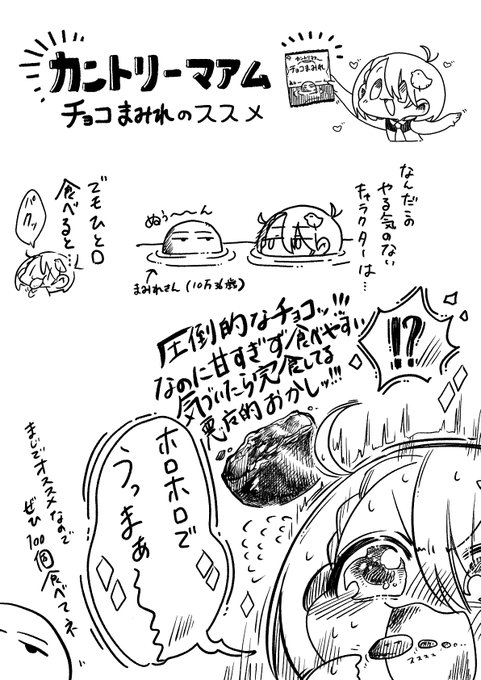 カントリーマアム
チョコまみれのススメ
カントリーマアム
チョコまみれ
なんだこの
やる気のない
キャラクターは…
ぬぅ〜〜ん
まみれさん(10万36歳)
でもひと口
食べると…
パクッ
!?
圧倒的なチョコッ!!!
なのに甘すぎず食べやすい
気づいたら完食してる
悪魔的おかしッ!!!
ホロホロで
うっまぁ〜〜
まじでオススメなので
ぜひ100個食べてネ